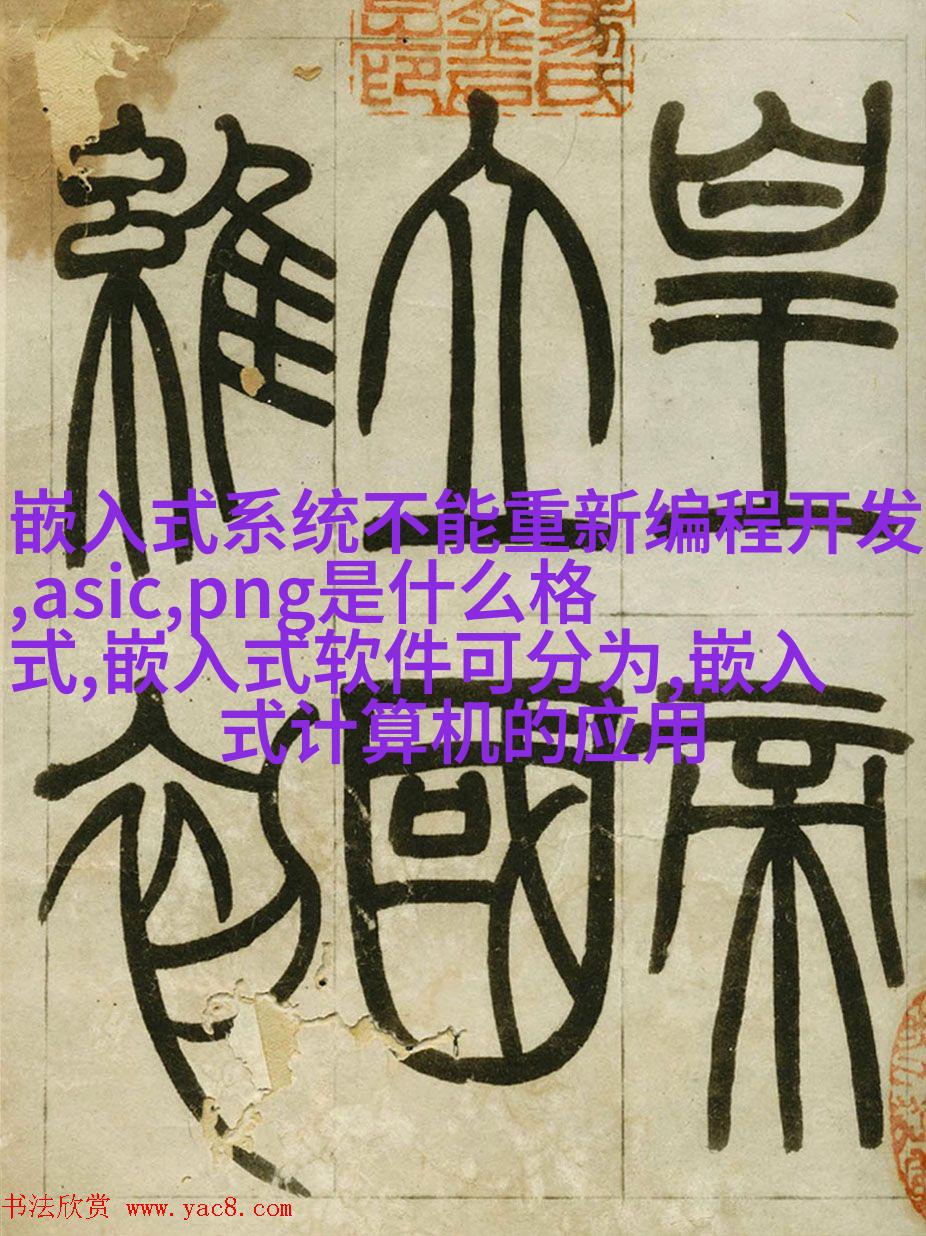 皇帝
立國
維初
嵌入式系统不能重新编程开发
,asic,png是什么格
式,嵌入式软件可分为,嵌入
式计算机的应用
书法欣赏 www.yac8.com